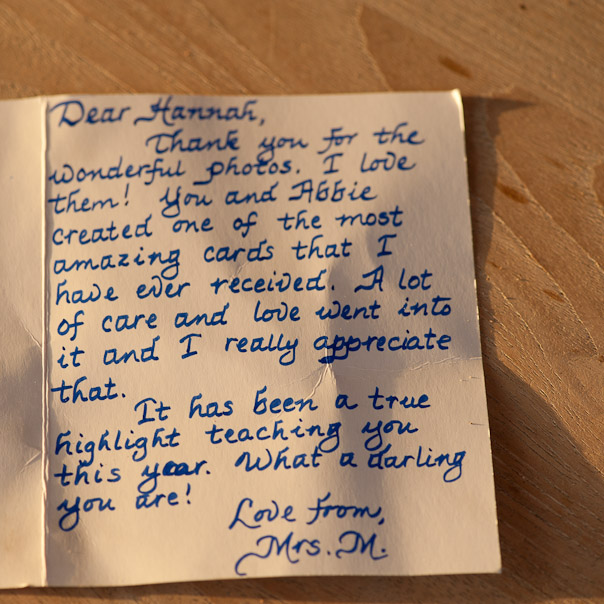 Dear Hannah,
Thank you for the
wonderful photos. I love
them! You and Abbie
created one of the most
amazing cards that I
have ever received. A lot
of care and love went into
it and I really appreciate
that.
It has been a true
highlight teaching you
this year. What a darling
you are!
Love from,
Mrs. M.